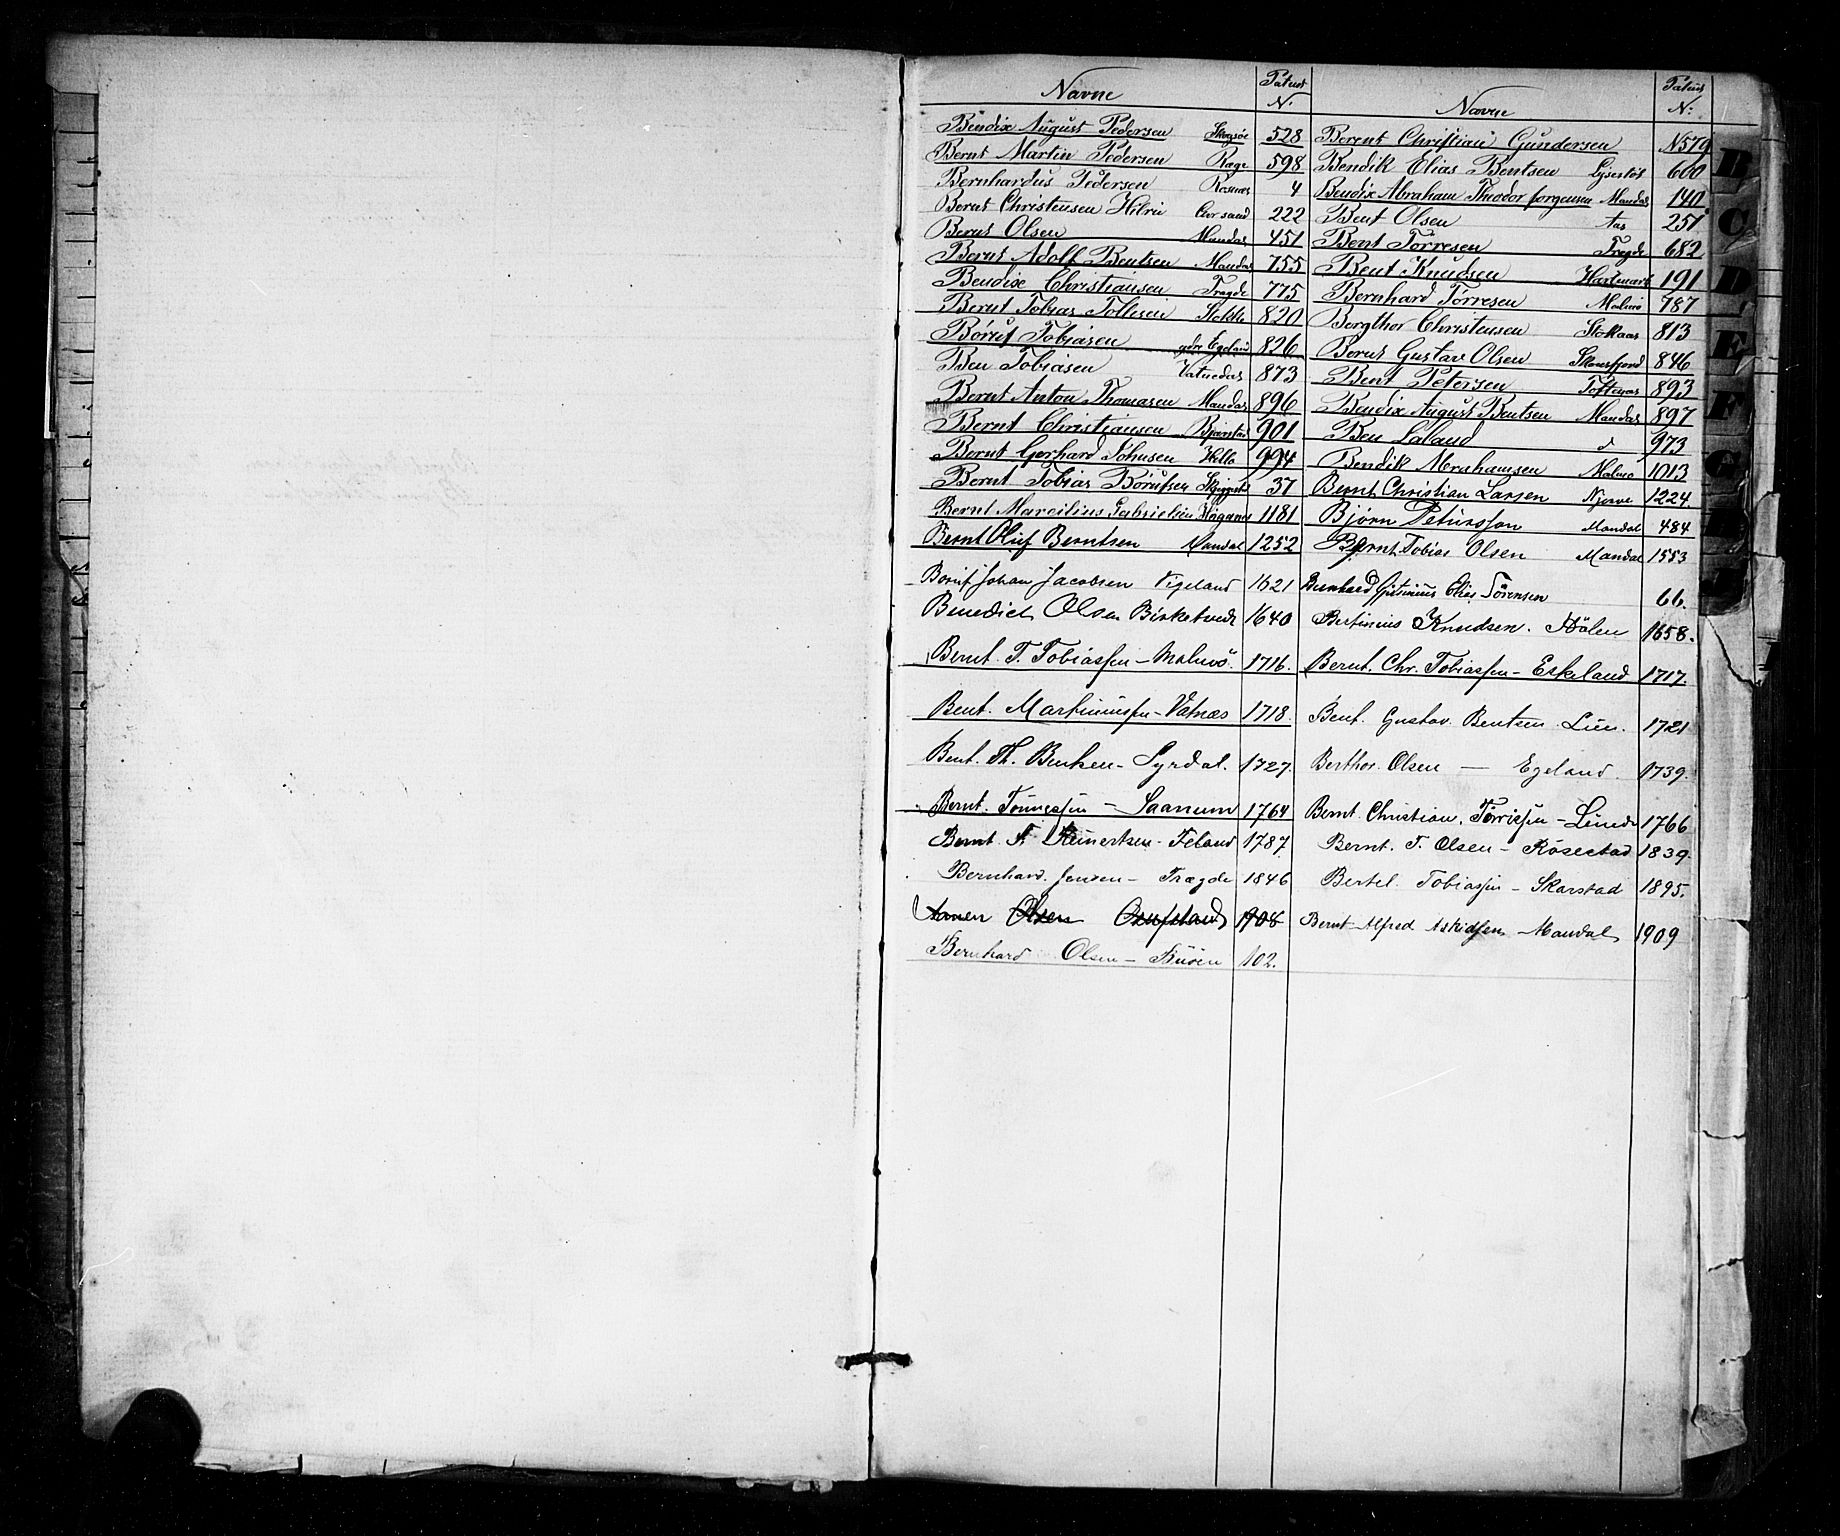 Navne Patent N. Navne Patent N:
Bendix August Pedersen Skogsøe 528 Berent Christian Gundersen N 579
Bernt Martin Pedersen Rage 598 Bendik Elias Bentsen 600
Bernhardus Pedersen Rosnæs 4 Bendix Abraham Theodor Jorgensen Mandal 140
Bernt Christensen 222 Bent Olsen Aas 251
Bernt Olsen Mandal 451 Bent Torresen Tregde 682
Bernt Adolf Bentsen Mandal 755 Bent Knudsen Hartmark 191
Bendix Christiansen Tregde 775 Bernhard Torresen Malmø 787
Bernt Tobias Tollesen Stokke 820 Bergthor Christensen Stokaas 813
Børuf Tobiasen ydre Egeland 826 Bernt Gustav Olsen 846
Ben Tobiasen Vatnedal 873 Bent Petersen Toftenæs 893
Bernt Anton Thomasen Mandal 896 Bendix August Bentsen Mandal 897
Bernt Christiansen Bjørnstad 901 Ben Laland 973
Bernt Gerhard Johnsen Hille 994 Bendik Abrahamsen Malmø 1013
Bernt Tobias Børufsen 37 Bernt Christian Larsen Njerve 1224.
Bernt Marcilius Gabrielsen Haganes 1181 Bjørn Petursson Mandal 484
Bernt Oluf Berntsen Mandal 1252 Bernt Tobias Olsen Mandal 1553
Boruf Johan Jacobsen Vigeland 1621 Bernhard Elias Sörensen 66.
Benedict Olsen Birketvedt 1640 Bertinius Knudsen. Hölen 1658.
Bernt. T. Tobiassen - Malmö. 1716. Bernt. Chr. Tobiassen - Eskeland 1717.
Bent. Martiniussen - Vatnæs 1718. Bent. Gustav Bentsen. Lien. 1721
Bent. Th. Bentsen - Syrdal. 1727. Berthor. Olsen — Egeland. 1739.
Bernt. Tönnessen - Saanum 1764 Bernt. Christian. Törrissen - Lunde 1766
Bernt. Reinertsen - Feland 1787. Bernt. T. Olsen - Röserstad 1839.
Bernhard. Jensen - Trægde 1846 Bertel. Tobiassen - Skarstad 1895.
Aanen Olsen 1908 Bernt Alfred Askildsen - Mandal 1909
Bernhard Olsen - Büöen 102.
B
C
D
E
F
G
H
I